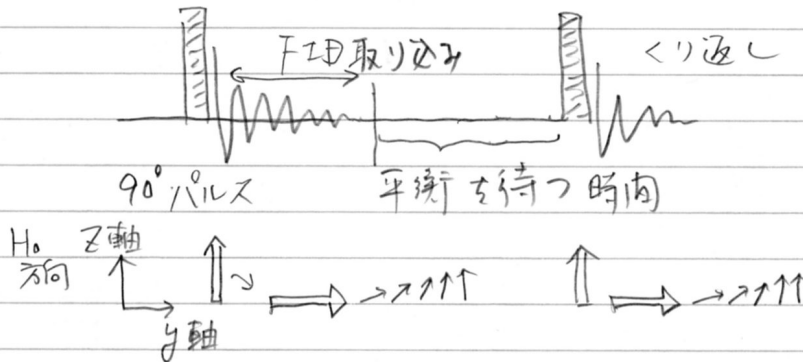 FID取り込み くり返し
90°パルス 平衡を待つ時間
H₀ Z軸
方向
y軸